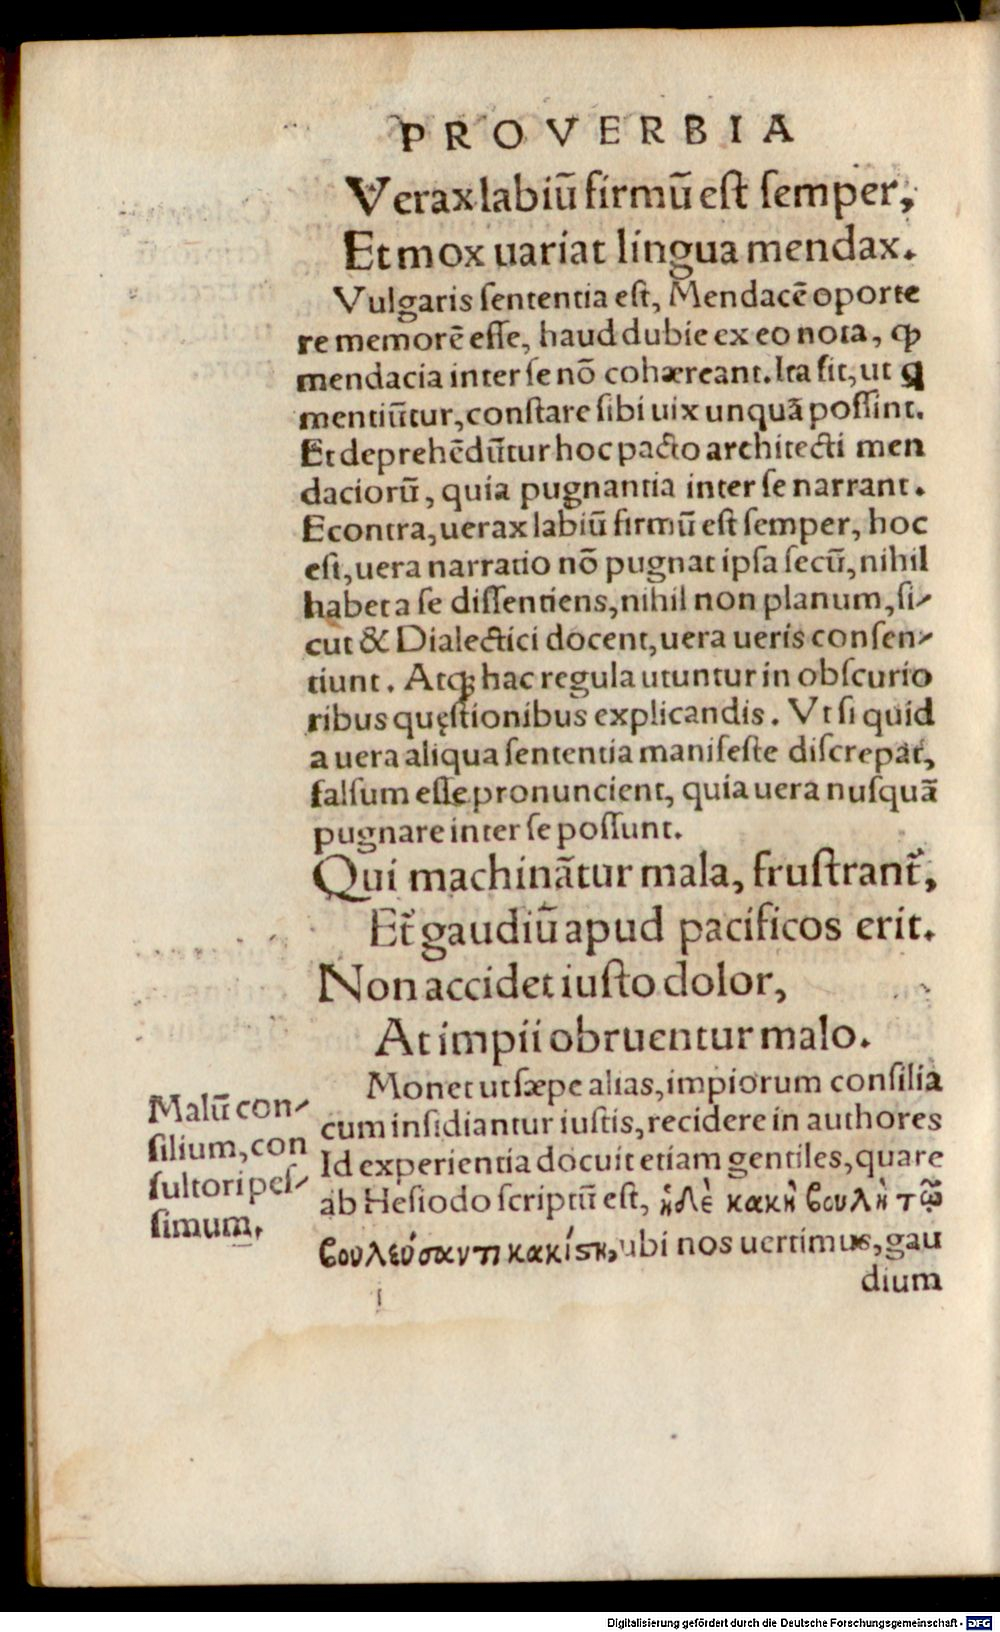 PROVERBIA
Verax labiū firmū est semper,
Et mox uariat lingua mendax.
Vulgaris sententia est, Mendacē oporte
re memorē esse, haud dubie ex eo nota, ꝙ
mendacia inter se nō cohæreant. Ita fit, ut q
mentiūtur, constare sibi uix unquā possint.
Et deprehēdūtur hoc pacto architecti men
daciorū, quia pugnantia inter se narrant.
Econtra, uerax labiū firmū est semper, hoc
est, uera narratio nō pugnat ipsa secū, nihil
habet a se dissentiens, nihil non planum, si-
cut & Dialectici docent, uera ueris consen-
tiunt. Atq; hac regula utuntur in obscurio
ribus quęstionibus explicandis. Vt si quid
a uera aliqua sententia manifeste discrepat,
falsum esse pronuncient, quia uera nusquā
pugnare inter se possunt.
Qui machināтur mala, frustrant̃,
Et̃ gaudiū apud pacificos erit.
Non accidet iusto dolor,
At impii obruentur malo.
Monet ut sæpe alias, impiorum consilia
cum insidiantur iustis, recidere in authores
Id experientia docuit etiam gentiles, quare
ab Hesiodo scriptū est, ἡδὲ κακὴ βουλὴ τῷ
βουλεύσαντι κακίστη, ubi nos uertimus, gau
dium
Malū con-
silium, con
sultori pes-
simum.
Digitalisierung gefördert durch die Deutsche Forschungsgemeinschaft - DFG